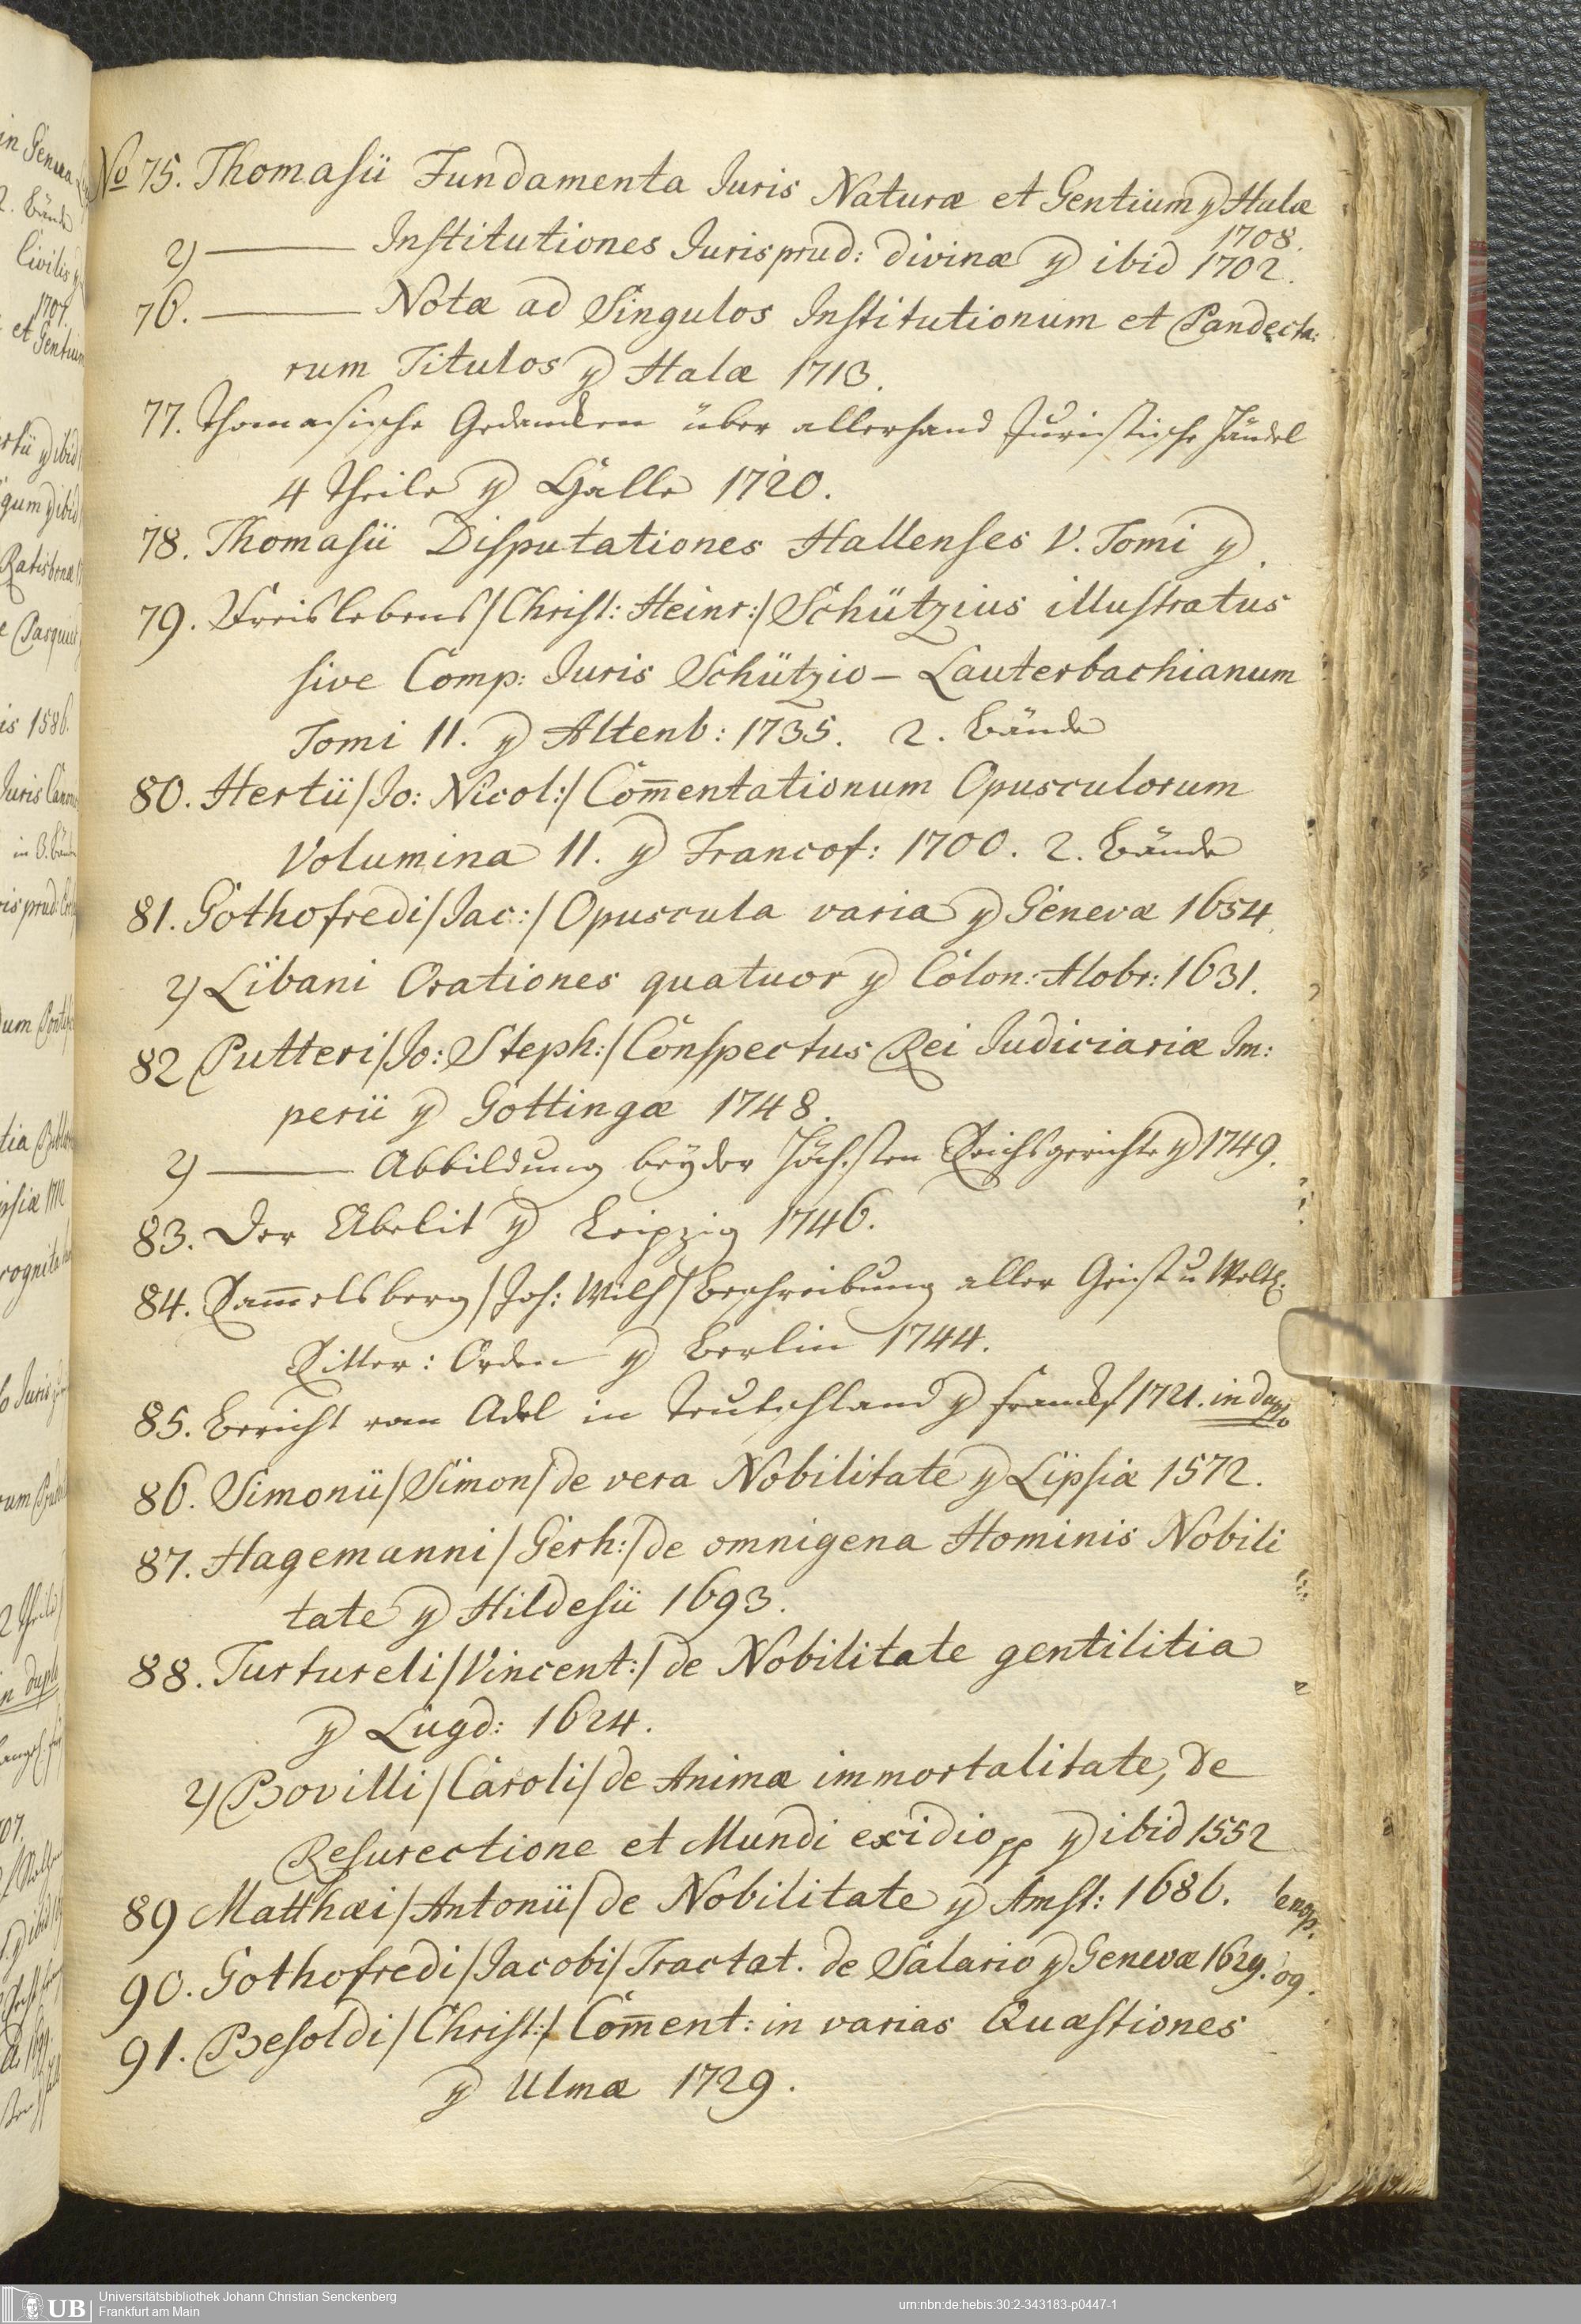 No 75. Thomasii Fundamenta Iuris Naturæ et Gentium y Halæ
1708.
2) ——— Institutiones Jurisprud: divinæ y ibid 1702.
76. ——— Notæ ad Singulos Institutionum et Pandecta:
rum Titulos y Halæ 1713.
77. Thomasische Gedancken über allerhand Juristische Händel
4 Theile y Halle 1720.
78. Thomasii Disputationes Hallenses V. Tomi y.
79. Freislebens/Christ: Heinr:/Schützius illustratus
sive Comp: Iuris Schützio - Lauterbachianum
Tomi II. y Altenb: 1735. 2. Bände
80. Hertii/Io: Nicol:/Com̄entationum Opusculorum
Volumina II. y Francof: 1700. 2. Bände
81. Gothofredi/Iac:/Opuscula varia y Genevæ 1654.
2) Libani Orationes quatuor y Colon: Alobr: 1631.
82 Putteri/Io: Steph:/Conspectus Rei Iudiciariæ Im:
perii y Gottingæ 1748.
2) ——— Abbildung beyder Höchsten Reichsgerichte y 1749.
83. Der Adelit y Leipzig 1746.
84. Ram̄elsberg/Joh: Wilh/Beschreibung aller Geist u Weltl.
Ritter: Orden y Berlin 1744.
85. Bericht vom Adel in Teutschland y Franckf 1721. in duplo
86. Simonii/Simon/de vera Nobilitate y Lipsiæ 1572.
87. Hagemanni/Gerh:/de omnigena Hominis Nobili
tate y Hildesii 1693.
88. Turtureli/Vincent:/de Nobilitate gentilitia
y Lugd: 1624.
2) Bovilli/Caroli/de Animæ immortalitate, de
Resurectione et Mundi exidio pp y ibid 1552
89 Matthæi/Antonii/de Nobilitate y Amst: 1686.
90. Gothofredi/Jacobi/Tractat. de Salario y Genevæ 1629.
91. Besoldi/Christ:/Com̄ent: in varias Quæstiones
y Ulmæ 1729.
UB
Universitätsbibliothek Johann Christian Senckenberg
Frankfurt am Main
urn:nbn:de:hebis:30:2-343183-p0447-1